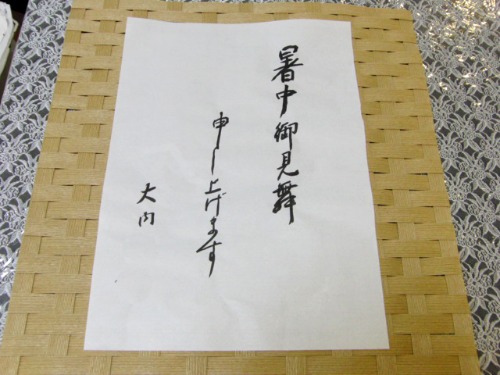 暑中御見舞
申し上げます
大内